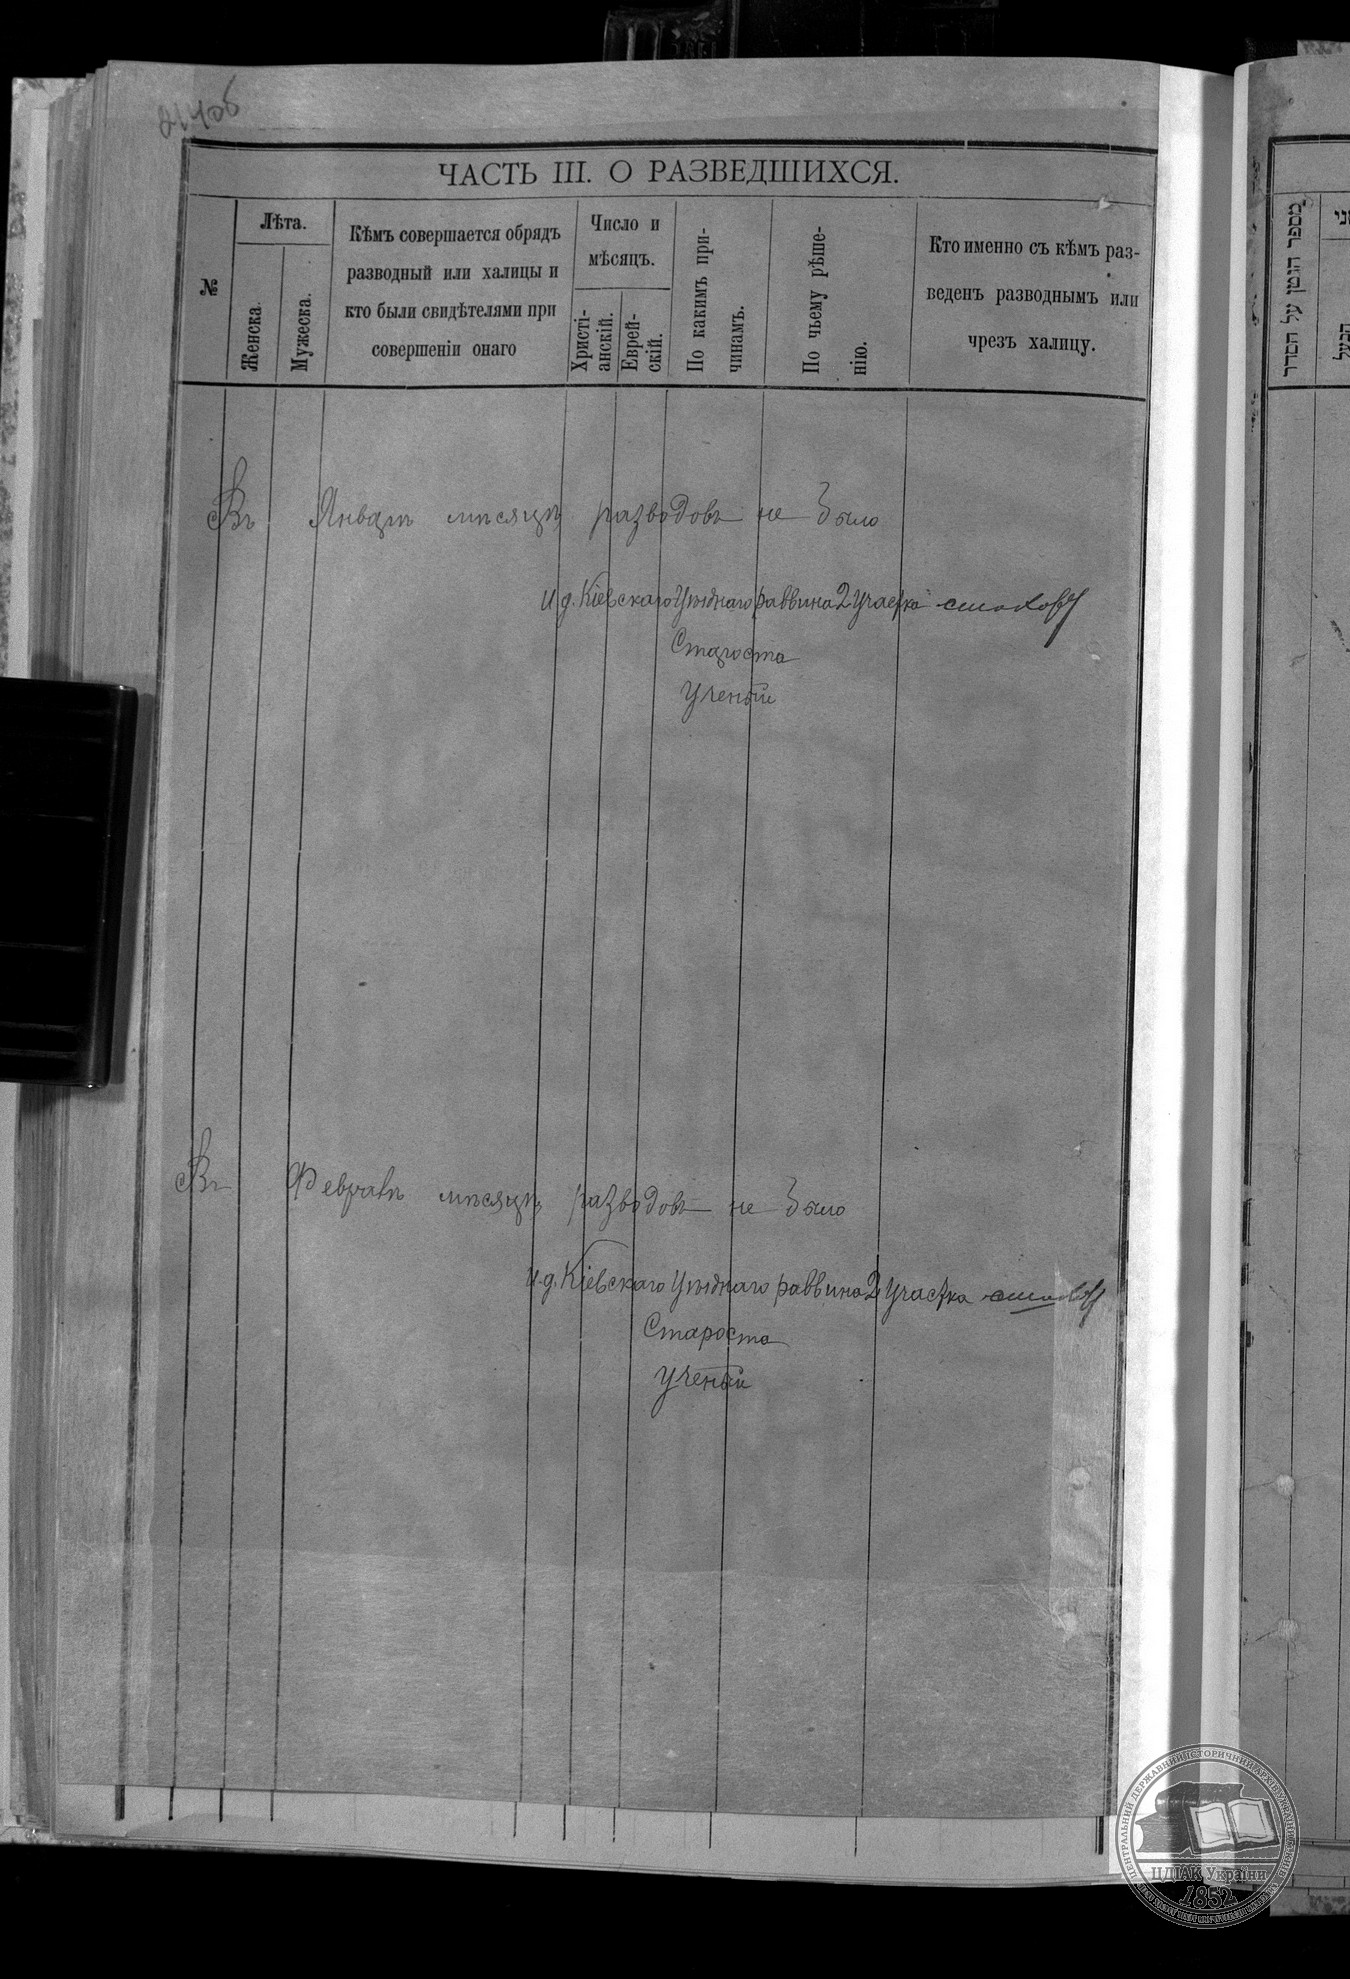 214об
ЧАСТЬ III. О РАЗВЕДШИХСЯ.
№
Лѣта.
Женска.
Мужеска.
Кѣмъ совершается обрядъ
разводный или халицы и
кто были свидѣтелями при
совершеніи онаго
Число и
мѣсяцъ.
Христі-
анскій.
Еврей-
скій.
По какимъ при-
чинамъ.
По чьему рѣше-
нію.
Кто именно съ кѣмъ раз-
веденъ разводнымъ или
чрезъ халицу.
Въ Январѣ мѣсяцѣ разводовъ не было
И. д. Кіевскаго Уѣзднаго раввина 2 Участка
Староста
Ученый
Въ Февралѣ мѣсяцѣ разводовъ не было
И. д. Кіевскаго Уѣзднаго раввина 2 Участка
Староста
Ученый
מספר הגטין על הסדר
הבעל
ЦЕНТРАЛЬНИЙ ДЕРЖАВНИЙ ІСТОРИЧНИЙ АРХІВ УКРАЇНИ
ЦДІАК України
1852